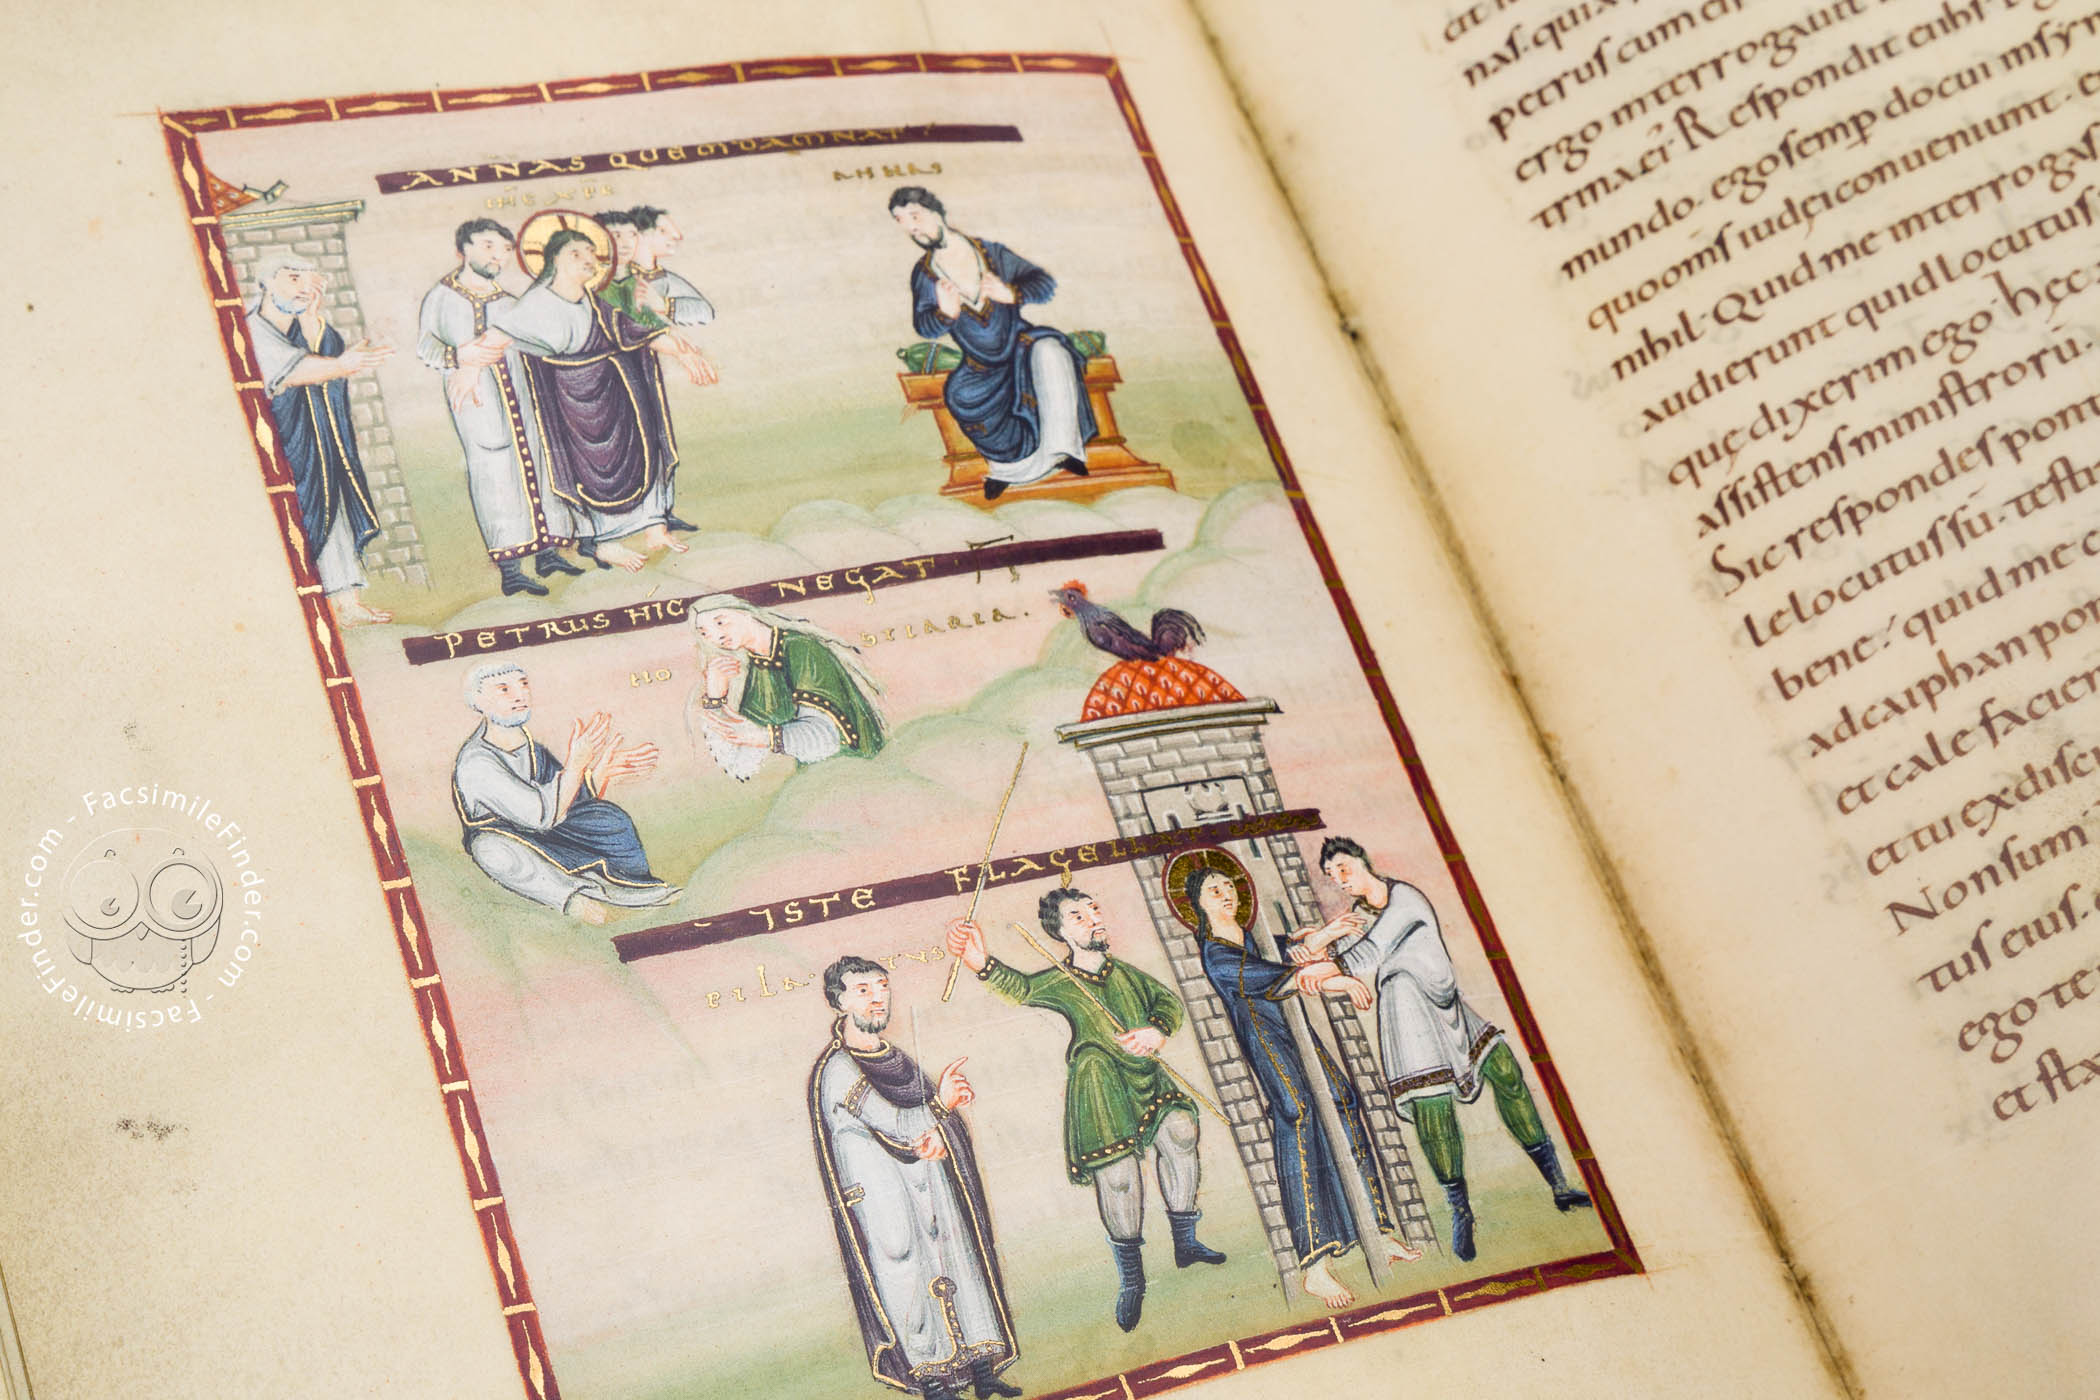 ANNAS QUEM DAMNAT
IHC XPC
ANNAS
PETRUS HIC NEGAT
HO STIARIA.
ISTE FLAGELLAT
PILATUS
petrus cum
ergo interrogauit
trina ei. Respondit ei ihs.
mundo. ego semp docui in sy
quo oms iudęi conueniunt. e
nihil. Quid me interrogas
audierunt quid locutus
quę dixerim ego. hęc
assistens ministrorū.
Sic respondes pont
le locutus sū. testi
bene. quid me c
ad caiphan pon
et calefacien
et tu ex disc
Non sum
tus eius.
ego te
et sta
FacsimileFinder.com - FacsimileFinder.com -